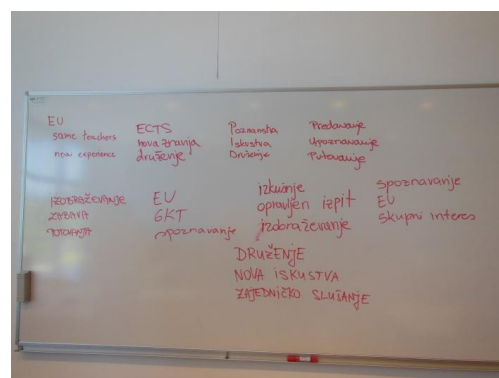 EU
same teachers
new experience
ECTS
nova znanja
druženje
Poznanstva
Iskustva
Druženje
Predavanje
Upoznavanje
Putovanje
IZOBRAŽEVANJE
ZABAVA
POTOVANJA
EU
6KT
spoznavanje
izkušnje
opravljen izpit
izobraževanje
spoznavanje
EU
skupni interes
DRUŽENJE
NOVA ISKUSTVA
ZAJEDNIČKO SLUŠANJE